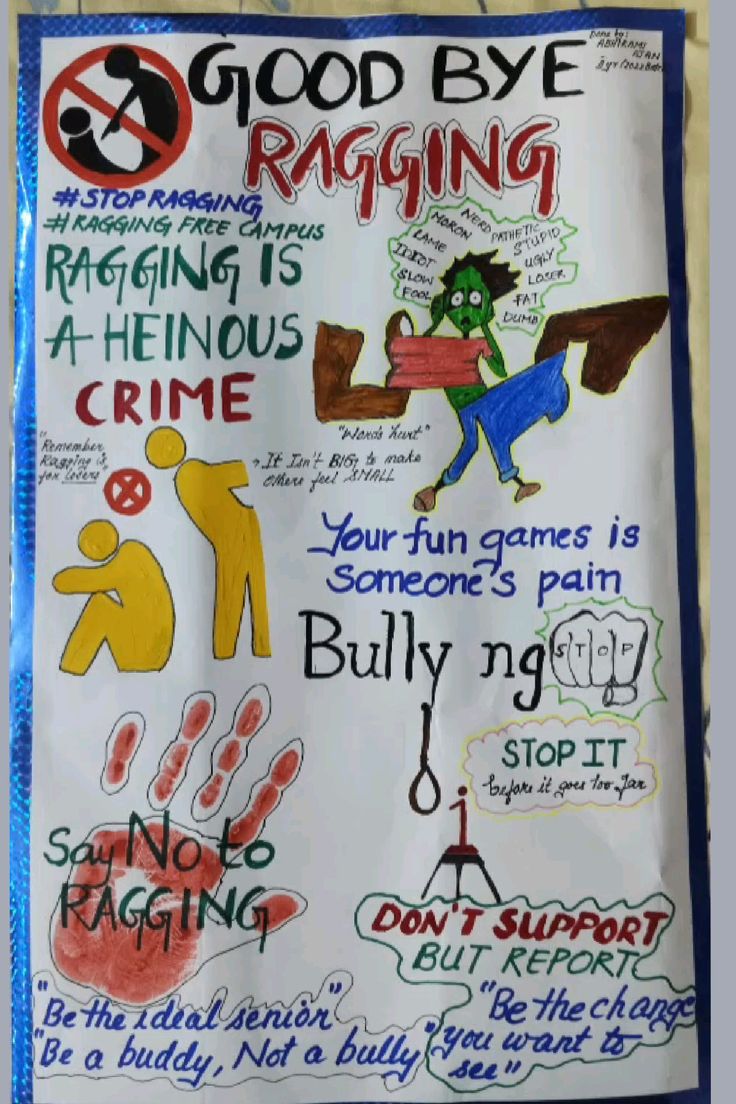 GOOD BYE
RAGGING
Done by:
ABHIRAMI
AJAN
# STOP RAGGING
# RAGGING FREE CAMPUS
RAGGING IS
A HEINOUS
CRIME
LAME
MORON
NERD
PATHETIC
STUPID
IDIOT
UGLY
SLOW
LOSER
FOOL
FAT
DUMB
"Words hurt"
"Remember
Ragging is
for Losers"
→ It Isn't BIG, to make
others feel SMALL
Your fun games is
Someone's pain
Bully ng
STOP
STOP IT
before it goes too far
i
Say No to
RAGGING
DON'T SUPPORT
BUT REPORT
"Be the ideal senior"
"Be a buddy, Not a bully"
"Be the change
you want to
see"